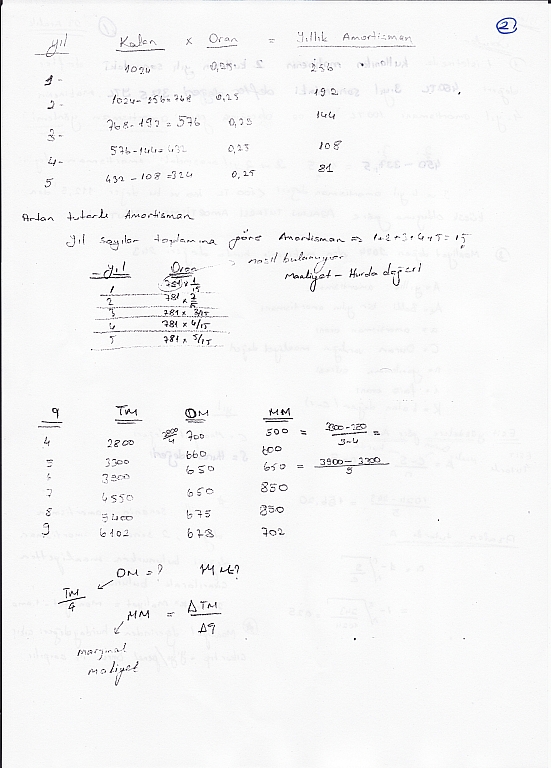 2
Yıl Kalan x Oran = Yıllık Amortisman
1- 1024 0,25 256
2- 1024-256=768 0,25 192
3- 768-192=576 0,25 144
4- 576-144=432 0,25 108
5 432-108=324 0,25 81
Artan tutarlı Amortisman
Yıl sayılar toplamına göre Amortisman => 1+2+3+4+5=15
nasıl bulunuyor
Yıl Oran
Maaliyet - Hurda değeri
1 781 x 1/15
2 781 x
3 781 x 3/15
4 781 x 4/15
5 781 x 5/15
q TM OM MM
4 2800 700 500 =
5 3300 660 600
6 3900 650 650 = 3900-3300
7 4550 650 850
8 5400 675 850
9 6102 678 702
OM=? MM?
TM/q
MM = ΔTM/Δq
marjinal
maliyet